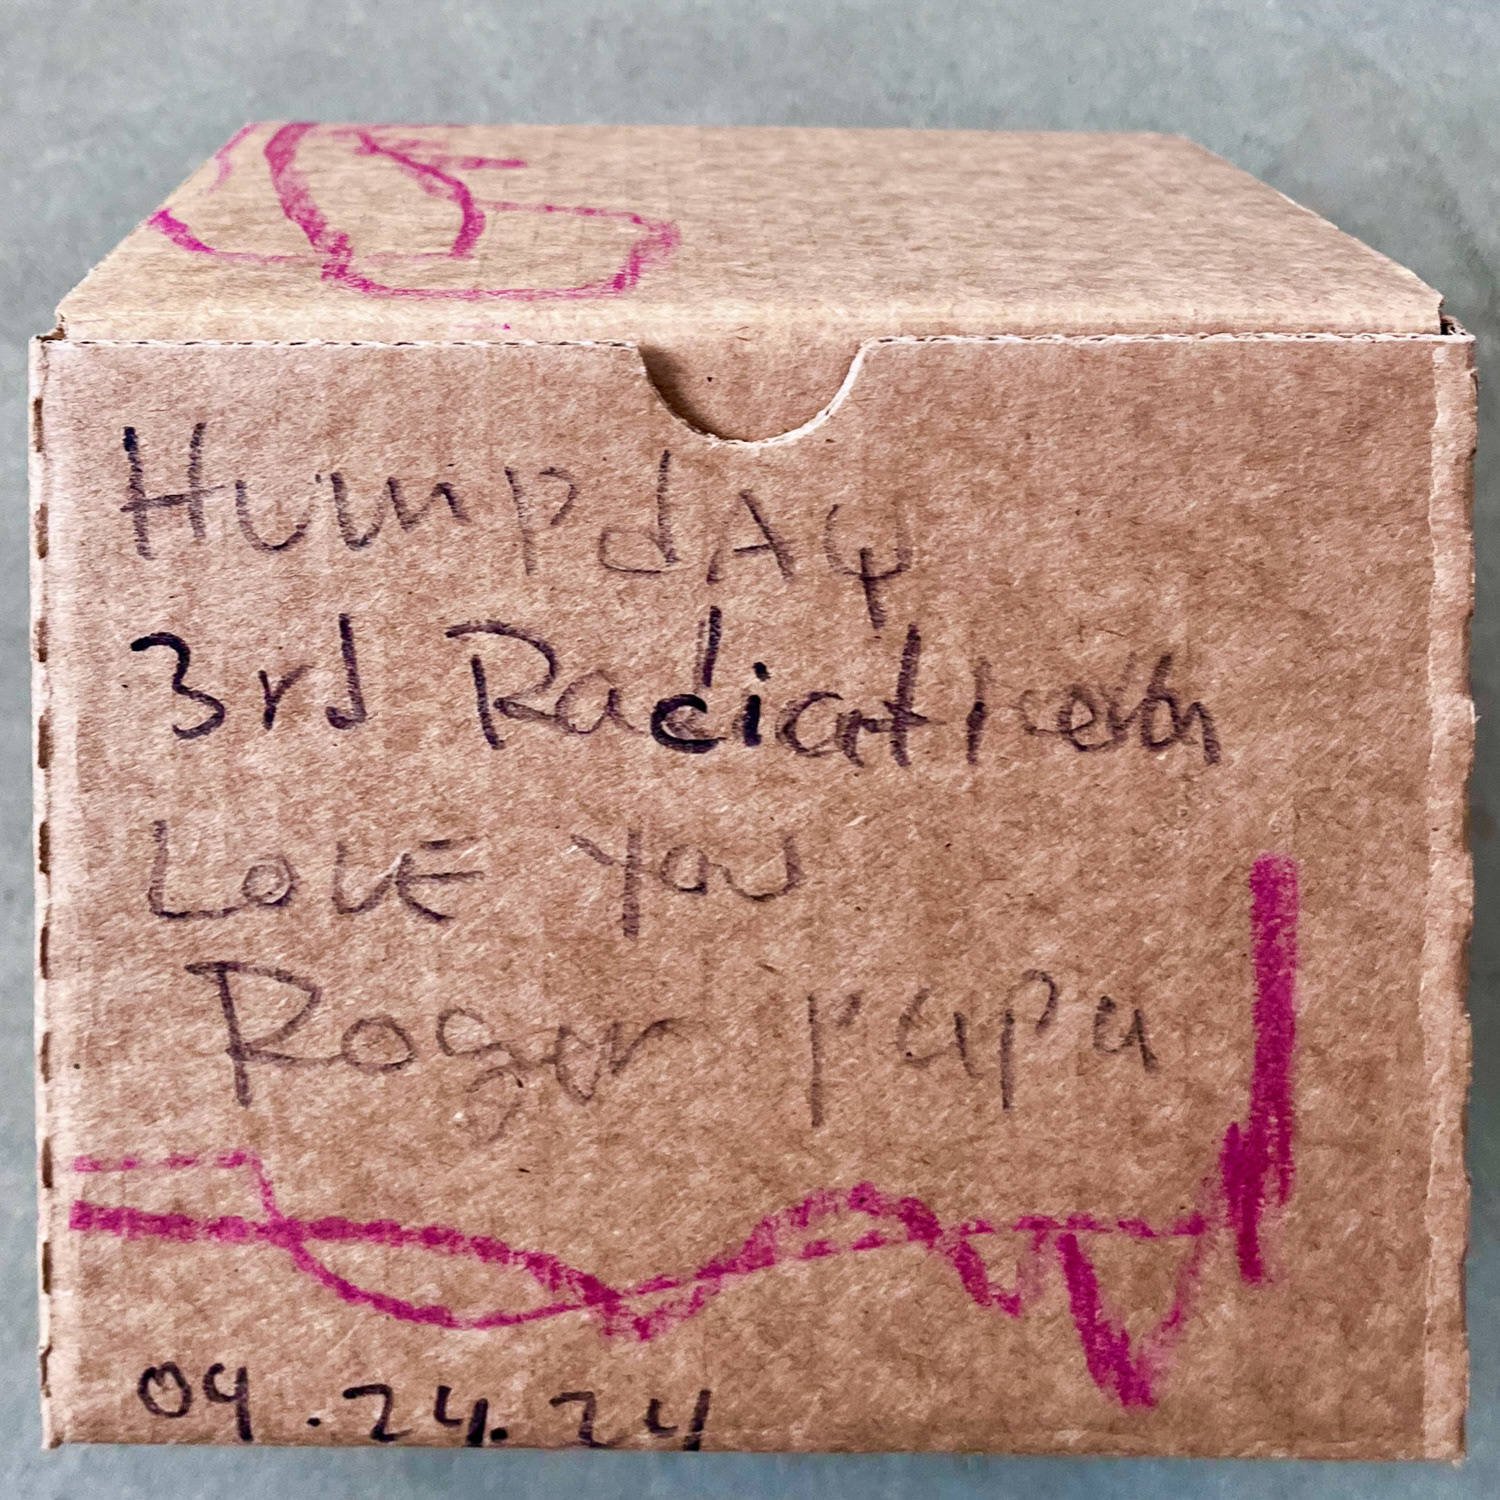 HumpdAy
3rd Radiation
LOVE You
Roger papa
09.24.24